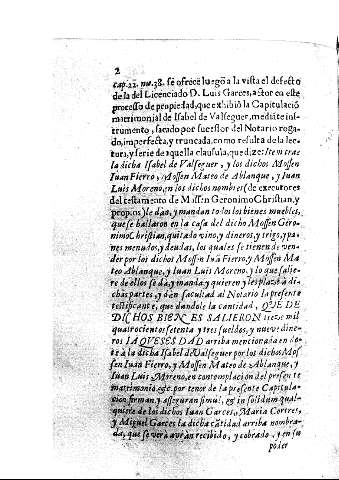 2
cap. 22. nu. 38. se ofrece luego a la vista el defecto
de la del Licenciado D. Luis Garces, actor en este
processo de propiedad, que exhibiò la Capitulaciõ
matrimonial de Isabel de Valseguer, mediãte ins-
trumento, sacado por sucessor del Notario roga-
do, imperfecta, y truncada, como resulta de la lec-
tura, y serie de aquella clausula, que dize: Item trae
la dicha Isabel de Valseguer, y los dichos Mossen
Iuan Fierro, Mossen Mateo de Ablanque, y Iuan
Luis Moreno, en los dichos nombres (de executores
del testamento de Mossen Geronimo Christian, y
propios) le dan, y mandan todos los bienes muebles,
que se hallaron en la casa del dicho Mossen Gero-
nimo Christian, quitado vino, y dineros, y trigo, y pa-
nes menudos, y deudas, los quales se tienen de ven-
der por los dichos Mossen Iuã Fierro, y Mossen Ma
teo Ablanque, y Iuan Luis Moreno, y lo que salie-
re de ellos se dà, y manda, y quieren, y les plaze à di-
chas partes, y dàn facultad al Notario la presente
testificante, que dandole la cantidad, QVE DE
DICHOS BIENES SALIERON treze mil
quatrocientos setenta y tres sueldos, y nueve dine-
ros LA QVESEDAD arriba mencionada en do-
te à la dicha Isabel de Valseguer por los dichos Mos
sen Iuan Fierro, y Mossen Mateo de Ablanque, y
Iuan Luis Moreno, en contemplacion del presente
matrimonio, que por tenor de la presente Capitula-
cion firman, y asseguran simul, & in solidum qual-
quiere de los dichos Iuan Garces, Maria Cortes,
y Miguel Garces la dicha cãtidad arriba nombra-
da, que se verà avràn recibido, y cobrado, y en su
poder